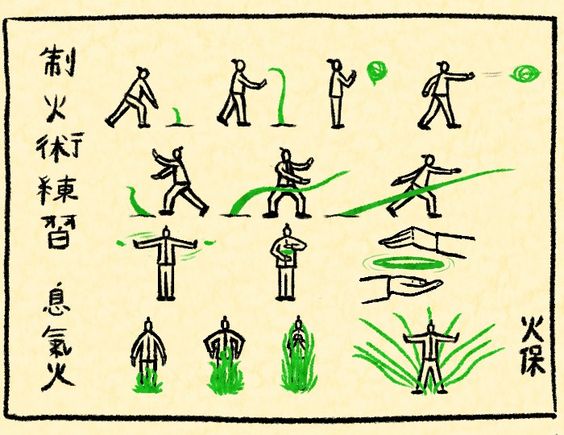 制火術練習 息氣火
火保